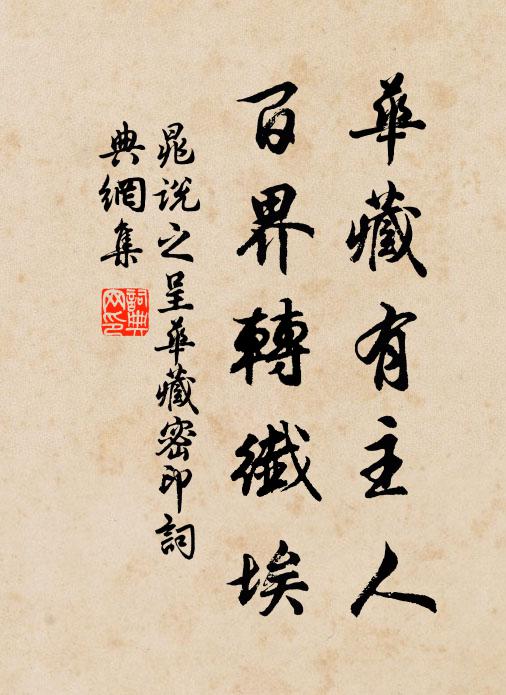 華藏有主人
百界轉纖埃
晁說之呈華藏密印詞
典網集
詞典網印